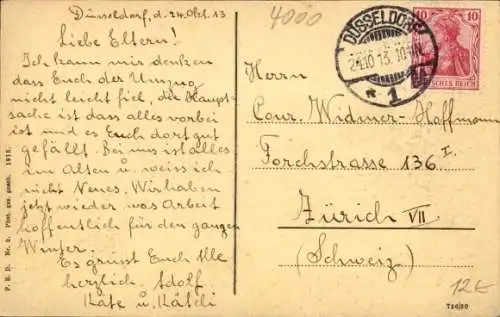 Düsseldorf, d. 24. Okt. 13
Liebe Eltern!
Ich kann mir denken
dass Euch der Umzug
nicht leicht fiel, die Haupt-
sache ist dass alles vorbei
ist und es Euch dort gut
gefällt. Bei uns ist alles
im Alten u. weiss ich
nicht Neues. Wir haben
jetzt wieder was Arbeit
hoffentlich für den ganzen
Winter.
Es grüsst Euch Alle
herzlich. Adolf
Käte u. Käteli
4000
DÜSSELDORF
24.10.13. 10-11
* 1
10 10
DEUTSCHES REICH
Herrn
Conr. Widmer-Hoffmann
Forchstrasse 136 I.
Zürich VII
(Schweiz)
12€
P. E. D. Nr. 2. Phot. ges. gesch. 1912.